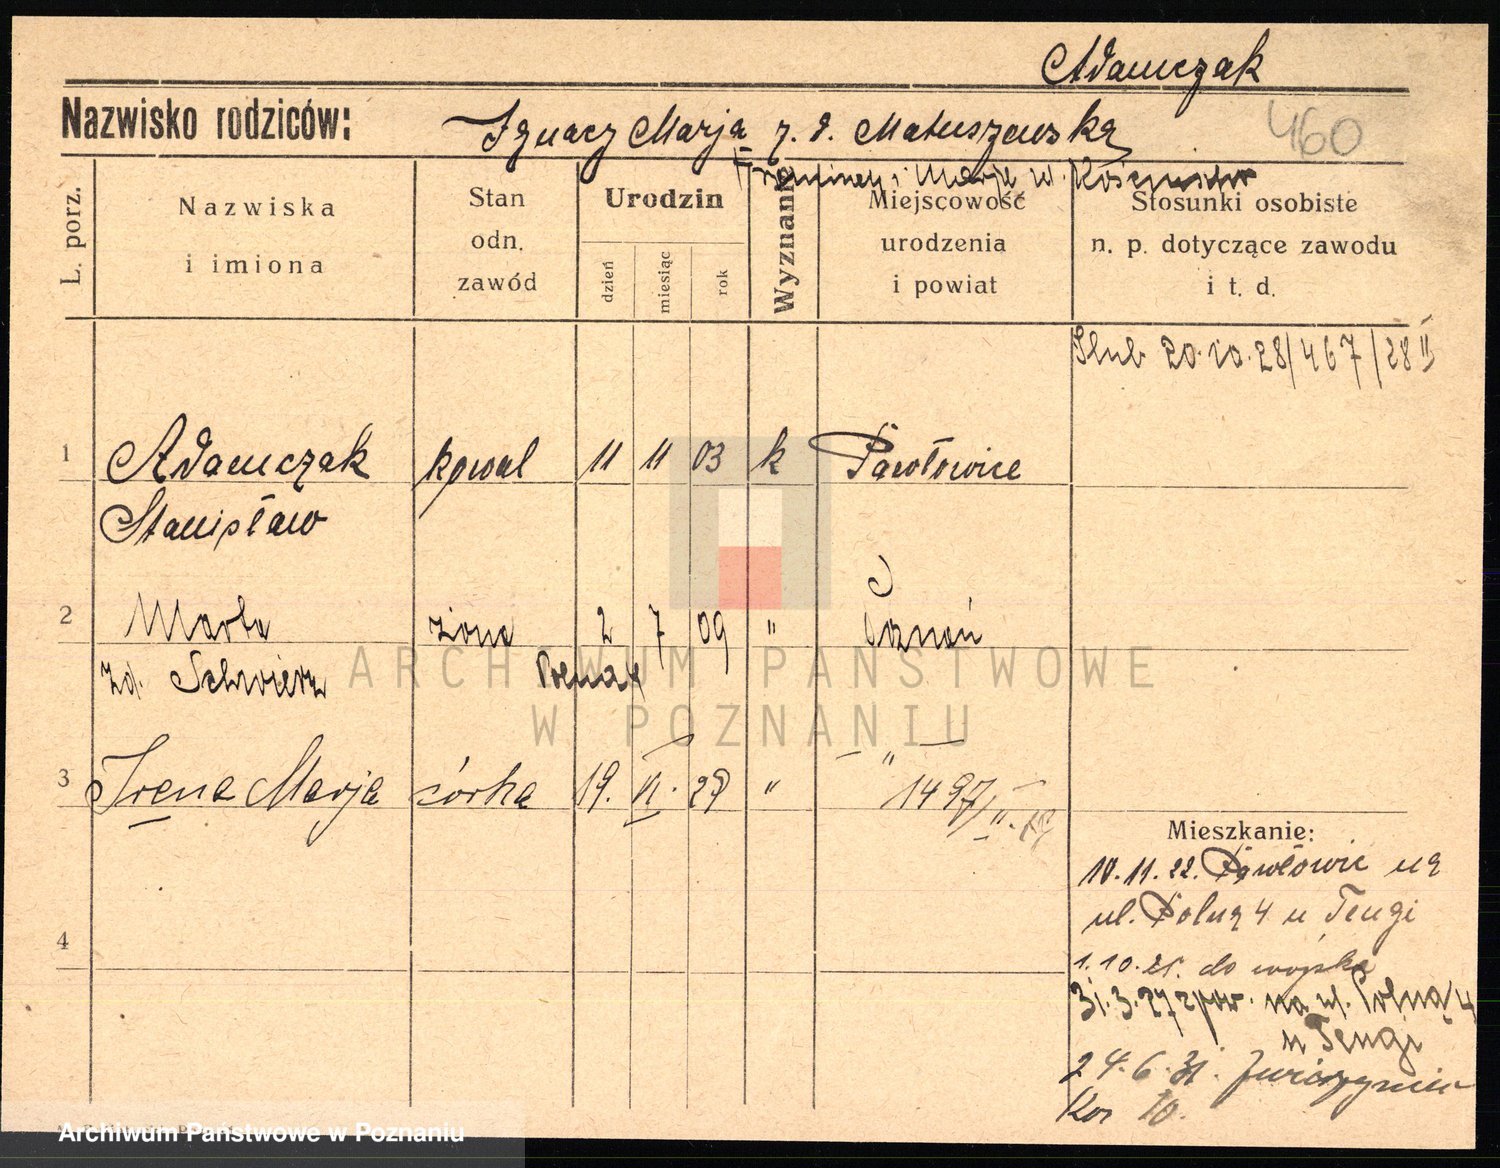 Adamczak
Nazwisko rodziców: Ignacy Marja z. d. Matuszewska
460
i Marja w.
L. porz.
Nazwiska
i imiona
Stan
odn.
zawód
Urodzin
dzień
miesiąc
rok
Wyznanie
Miejscowość
urodzenia
i powiat
Stosunki osobiste
n. p. dotyczące zawodu
i t. d.
Ślub 20.10.28/467/28 II
1 Adamczak kowal 11 11 03 k Pawłowice
Stanisław
2 Marta żona 2 7 09 " Poznań
zd. Schwierz
3 Irena Marja córka 19. VI. 29 " — " —
1497/II.
ARCHIWUM PAŃSTWOWE
W POZNANIU
4
Mieszkanie:
10.11.22. Pawłowic na
ul. Polną 4 u Tengi
1.10.25. do wojska
31.3.27 z pow. na ul. Polną 4
u Tengi
24.6.31.
10.
Archiwum Państwowe w Poznaniu